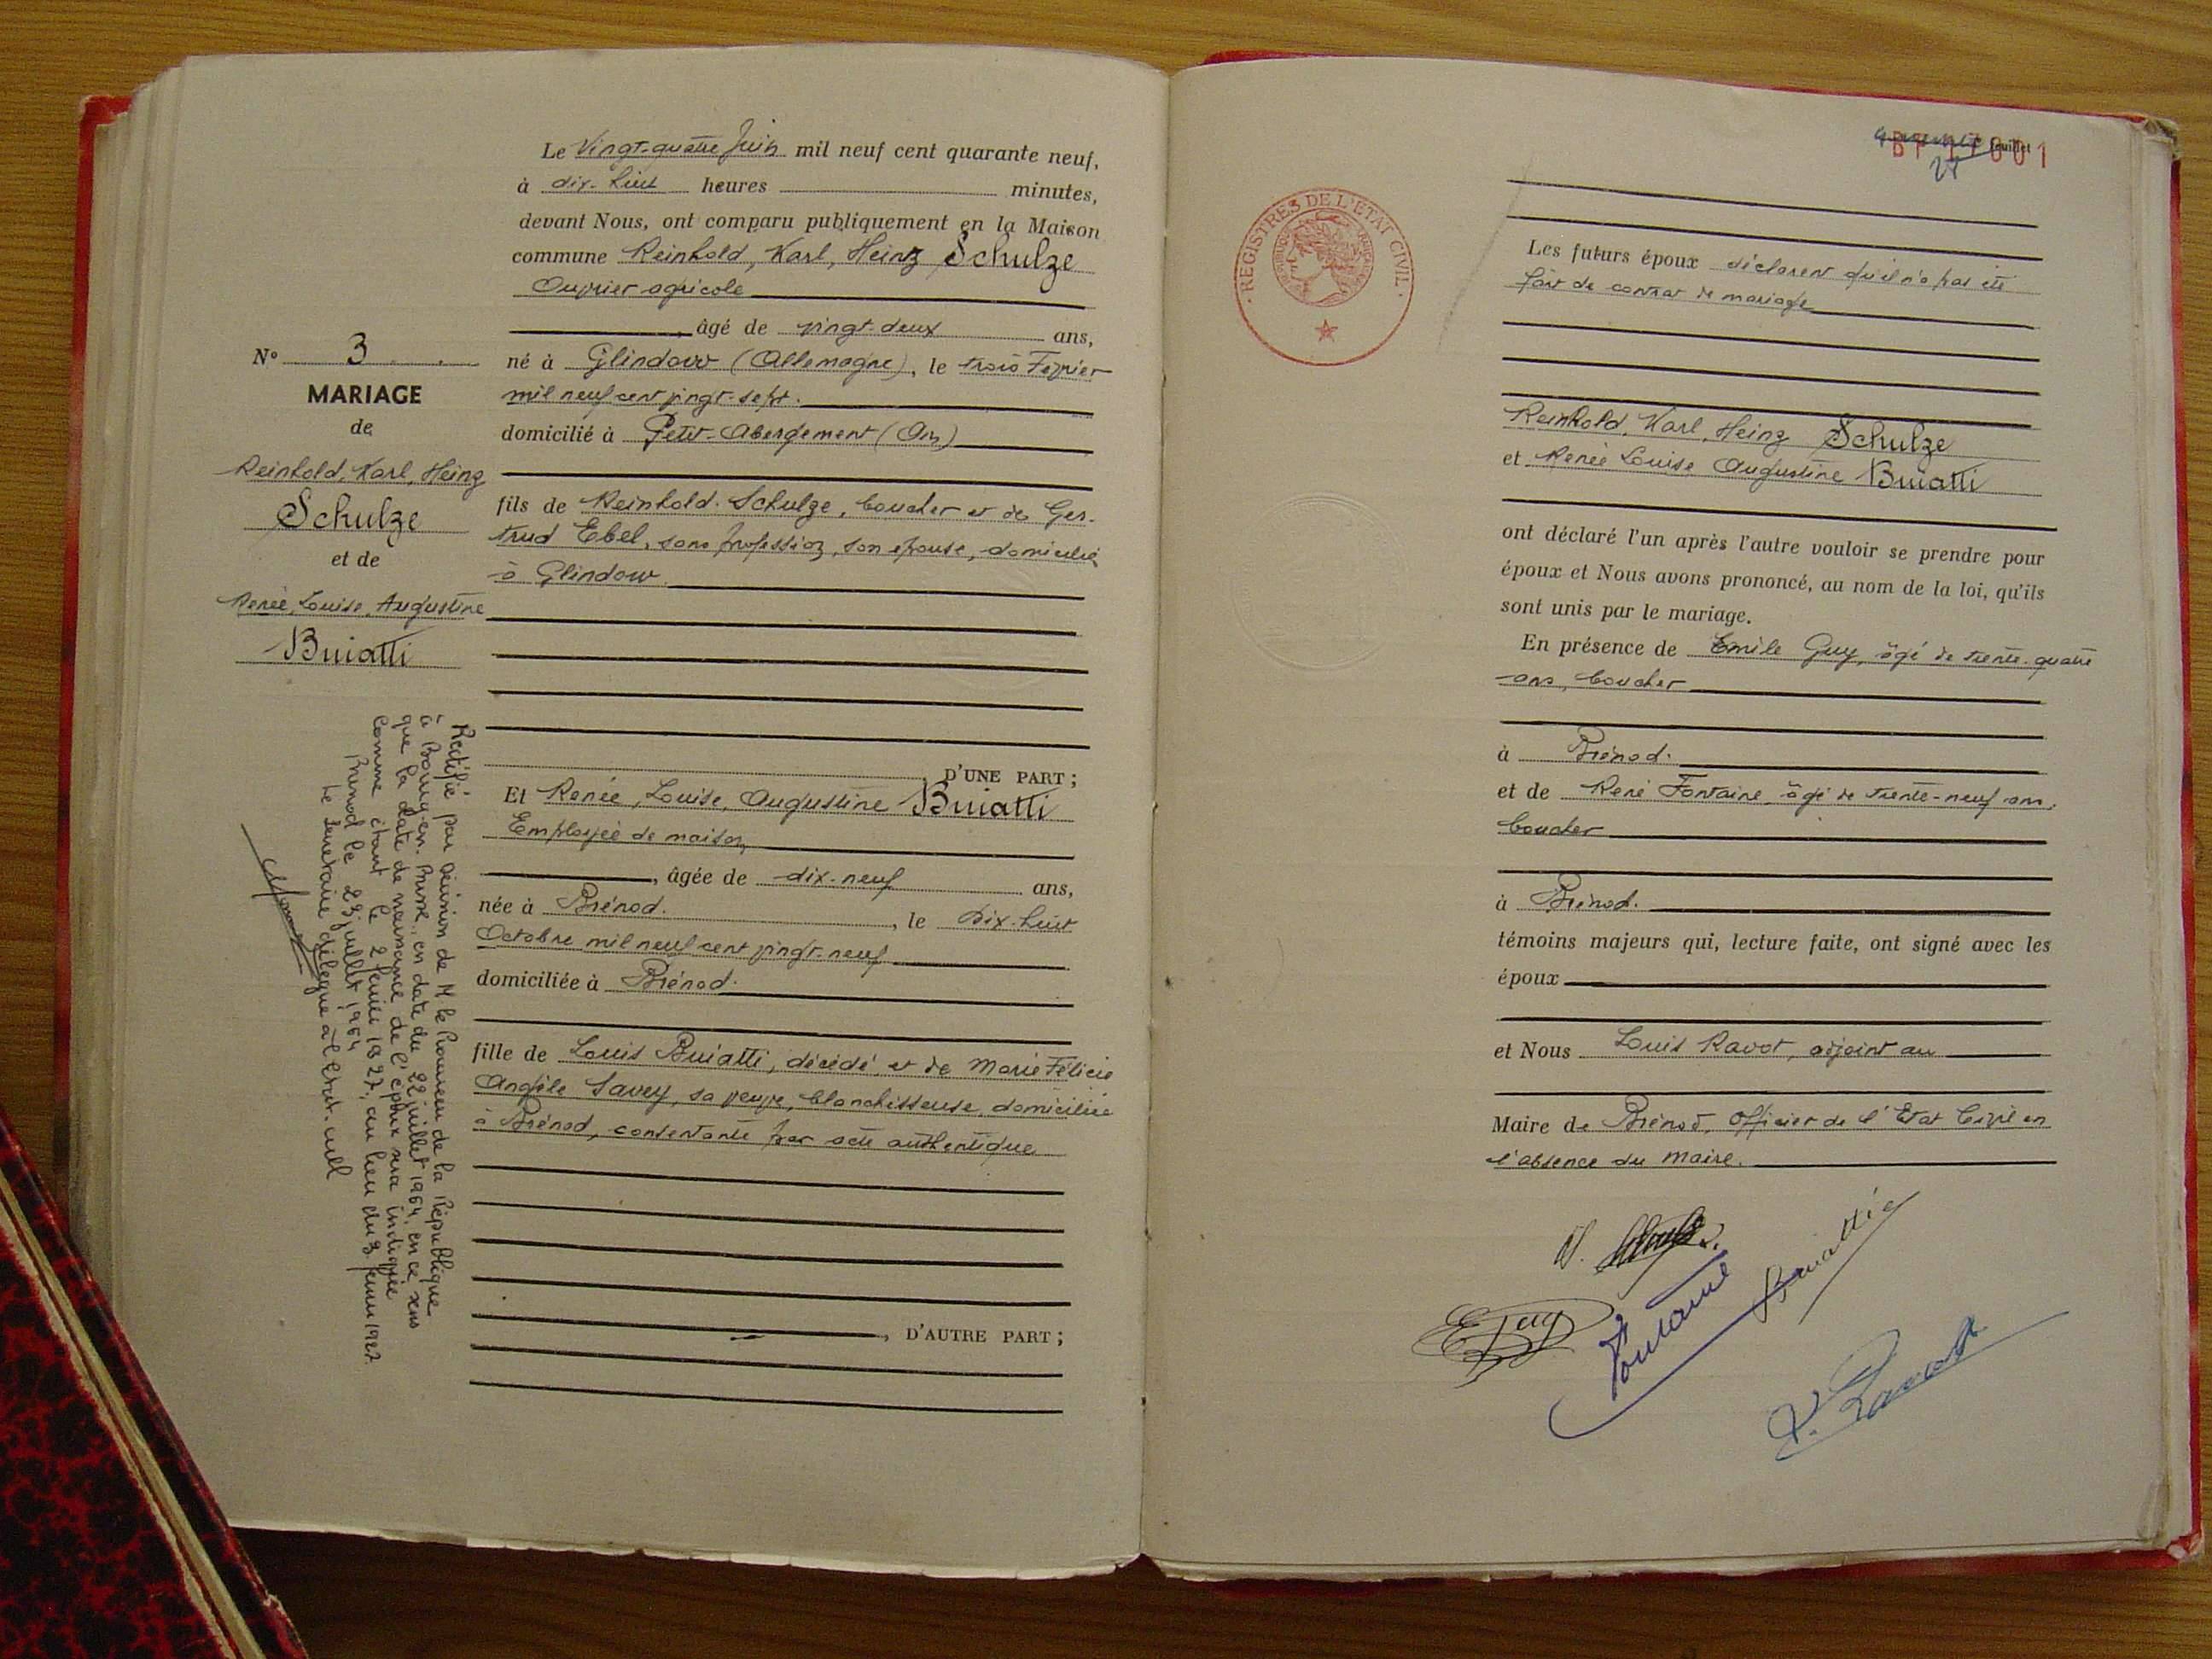 Le Vingt-quatre Juin mil neuf cent quarante neuf,
à dix-huit heures minutes,
devant Nous, ont comparu publiquement en la Maison
commune Reinhold, Karl, Heinz Schulze
Ouvrier agricole
, âgé de vingt-deux ans,
né à Glindow (Allemagne), le trois Février
mil neuf cent vingt-sept.
domicilié à Petit-Abergement (Ain)
fils de Reinhold Schulze, boucher et de Ger-
trud Ebel, sans profession, son épouse, domiciliés
à Glindow
, D'UNE PART ;
Et Renée, Louise, Augustine Buiatti
Employée de maison
, âgée de dix-neuf ans,
née à Brénod. , le Dix-huit
Octobre mil neuf cent vingt-neuf
domiciliée à Brénod.
fille de Louis Buiatti, décédé, et de Marie Félicie
Angèle Savey, sa veuve, blanchisseuse, domiciliée
à Brénod, consentante par acte authentique
, D'AUTRE PART ;
N° 3
MARIAGE
de
Reinhold, Karl, Heinz
Schulze
et de
Renée, Louise, Augustine
Buiatti
Rectifié par décision de M. le Procureur de la République
à Bourg-en-Bresse, en date du 22 juillet 1964, en ce sens
que la date de naissance de l'époux sera indiquée
comme étant le 2 février 1927, au lieu du 3 février 1927.
Brénod le 23 juillet 1964
Le Secrétaire délégué à l'Etat-civil
feuillet
BF 17001
24
REGISTRES DE L'ETAT CIVIL
Les futurs époux déclarent qu'il n'a pas été
fait de contrat de mariage
Reinhold, Karl, Heinz Schulze
et Renée Louise Augustine Buiatti
ont déclaré l'un après l'autre vouloir se prendre pour
époux et Nous avons prononcé, au nom de la loi, qu'ils
sont unis par le mariage.
En présence de Emile Guy, âgé de trente-quatre
ans, boucher
à Brénod.
et de René Fontaine, âgé de trente-neuf ans,
boucher
à Brénod.
témoins majeurs qui, lecture faite, ont signé avec les
époux
et Nous Louis Ravot, adjoint au
Maire de Brénod, Officier de l'Etat Civil en
l'absence du Maire.
Buiatti
E Guy
Fontaine
L. Ravot